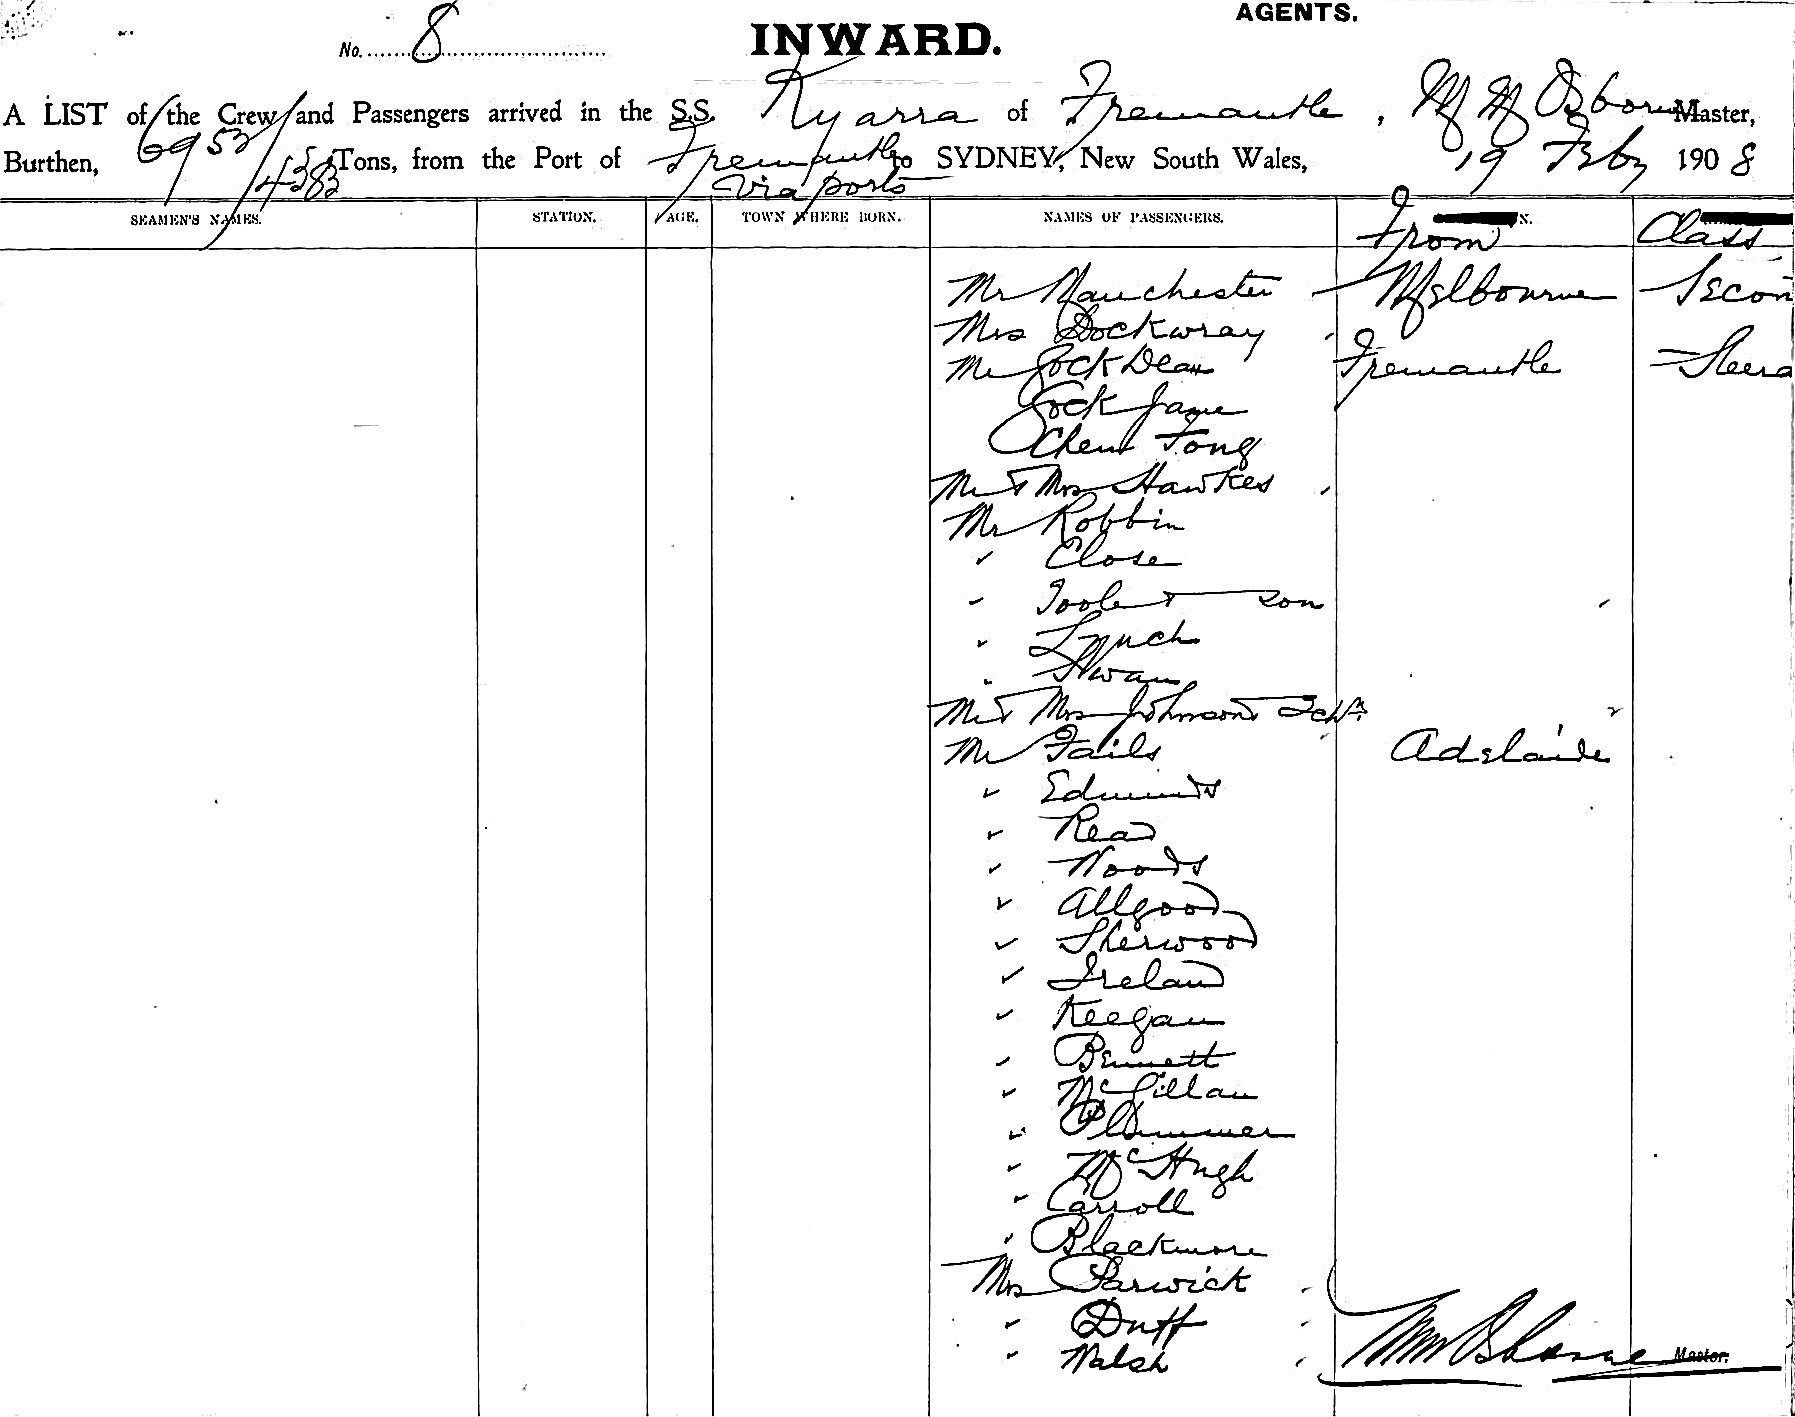 AGENTS.
No. 8
INWARD.
A LIST of the Crew and Passengers arrived in the S.S. Kyarra of Fremantle, M M Osborne Master,
Burthen, 6953/4383 Tons, from the Port of Fremantle to SYDNEY, New South Wales, 19 Feby 1908
via ports
SEAMEN'S NAMES. STATION. AGE. TOWN WHERE BORN. NAMES OF PASSENGERS. From Class
Mr Manchester Melbourne Secon
Mrs Dockwray
Mr Jock Dean Fremantle Steera
Jock Jame
Chem Fong
Mr & Mrs Hawkes
Mr Robbin
" Close
" Toole & son
" Lynch
" Swan
Mr & Mrs Johnson &
Mr Fails Adelaide
" Edmunds
" Read
" Woods
" Allgood
" Sherwood
" Ireland
" Keegan
" Bennett
" McGillan
" Plummer
" McHugh
" Carroll
" Blackmore
Mrs Parwick
" Duff
" Walsh
Master.